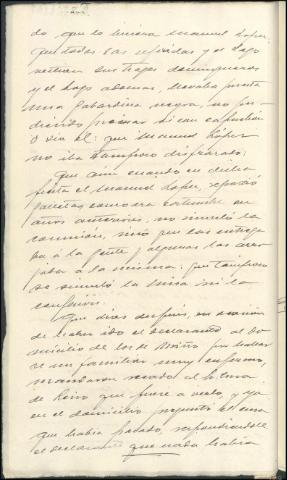 do, que lo hiciera Manuel Lopez,
que todas las referidas y el Lapo
vestian sus trajes domingueros
y el Lapo ademas, llevaba puesta
una gabardina negra, no pu-
diendo precisar si con capuchon
o sin el: que Manuel López
no iba tampoco disfrazado;
Que aun cuando en dicha
fiesta el Manuel Lopez, repartió
galletas como era costumbre en
años anteriores, no simuló la
comunión, sino que las entrega-
ba á la gente y algunas las arro-
jaba á la misma; que tampoco
se simuló la misa ni la
confesión.
Que dias después, en ocasión
de haber ido el declarante al do-
micilio de los de Miño por hallar-
se un familiar muy enfermo,
mandaron recado al Sr. Cura
de Reino que fuese a verlo, y ya
en el domicilio preguntó el cura
que habia pasado, respondiendole
el declarante que nada habia